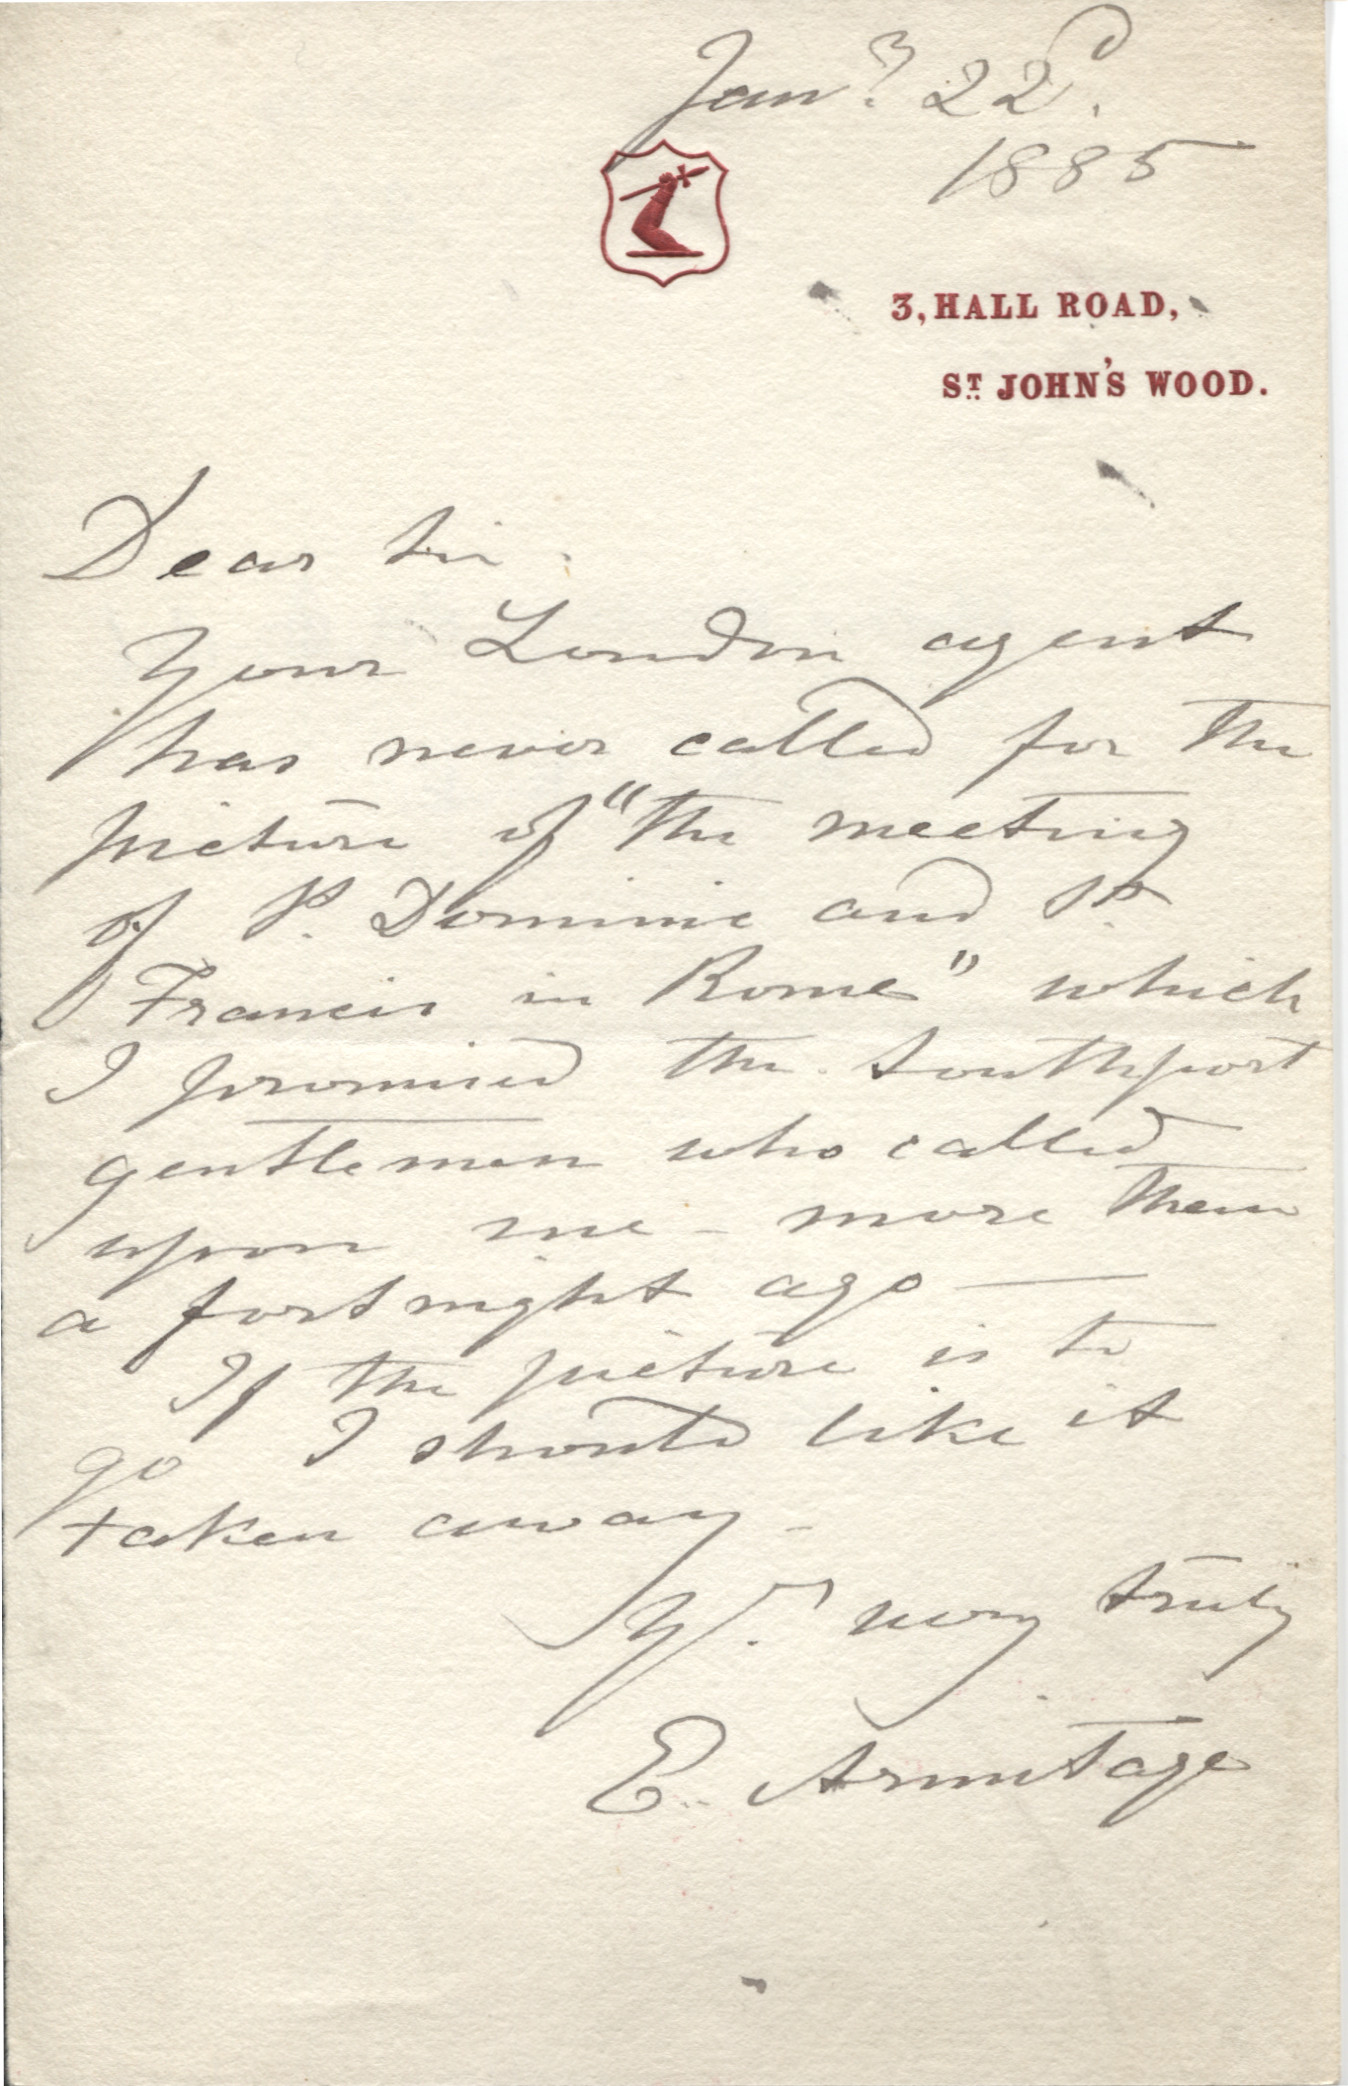 Jany 22d.
1885
3, HALL ROAD,
ST. JOHN'S WOOD.
Dear Sir.
Your London agent
has never called for the
picture of "the meeting
of St. Dominic and St.
Francis in Rome" which
I promised the Southport
gentlemen who called
upon me - more than
a fortnight ago —
If the picture is to
go I should like it
taken away -
Yrs. very truly
E. Armitage